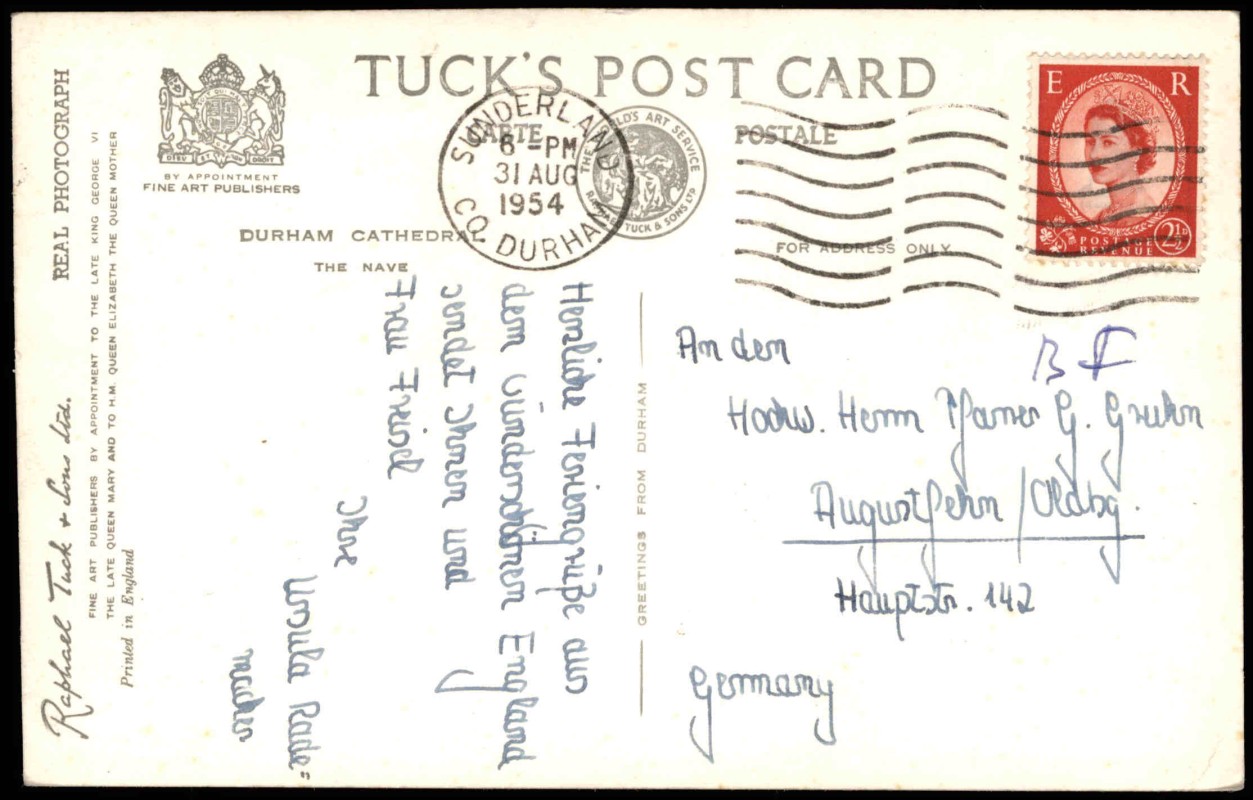 TUCK'S POST CARD
CARTE POSTALE
BY APPOINTMENT
FINE ART PUBLISHERS
THE WORLD'S ART SERVICE
RAPHAEL TUCK & SONS LTD
SUNDERLAND
6 - PM
31 AUG
1954
CO. DURHAM
E R
POSTAGE
REVENUE
2½
DURHAM CATHEDRAL
THE NAVE
FOR ADDRESS ONLY
REAL PHOTOGRAPH
Raphael Tuck & Sons Ltd.
FINE ART PUBLISHERS BY APPOINTMENT TO THE LATE KING GEORGE VI
THE LATE QUEEN MARY AND TO H.M. QUEEN ELIZABETH THE QUEEN MOTHER
Printed in England
Herzliche Feriengrüße aus
dem wunderschönen England
sendet Ihnen und
Frau Freisel
Ihre
Ursula Rade=
macher
GREETINGS FROM DURHAM
An den
Hochw. Herrn Pfarrer G. Gruhn
Augustfehn / Oldbg.
Hauptstr. 142
Germany